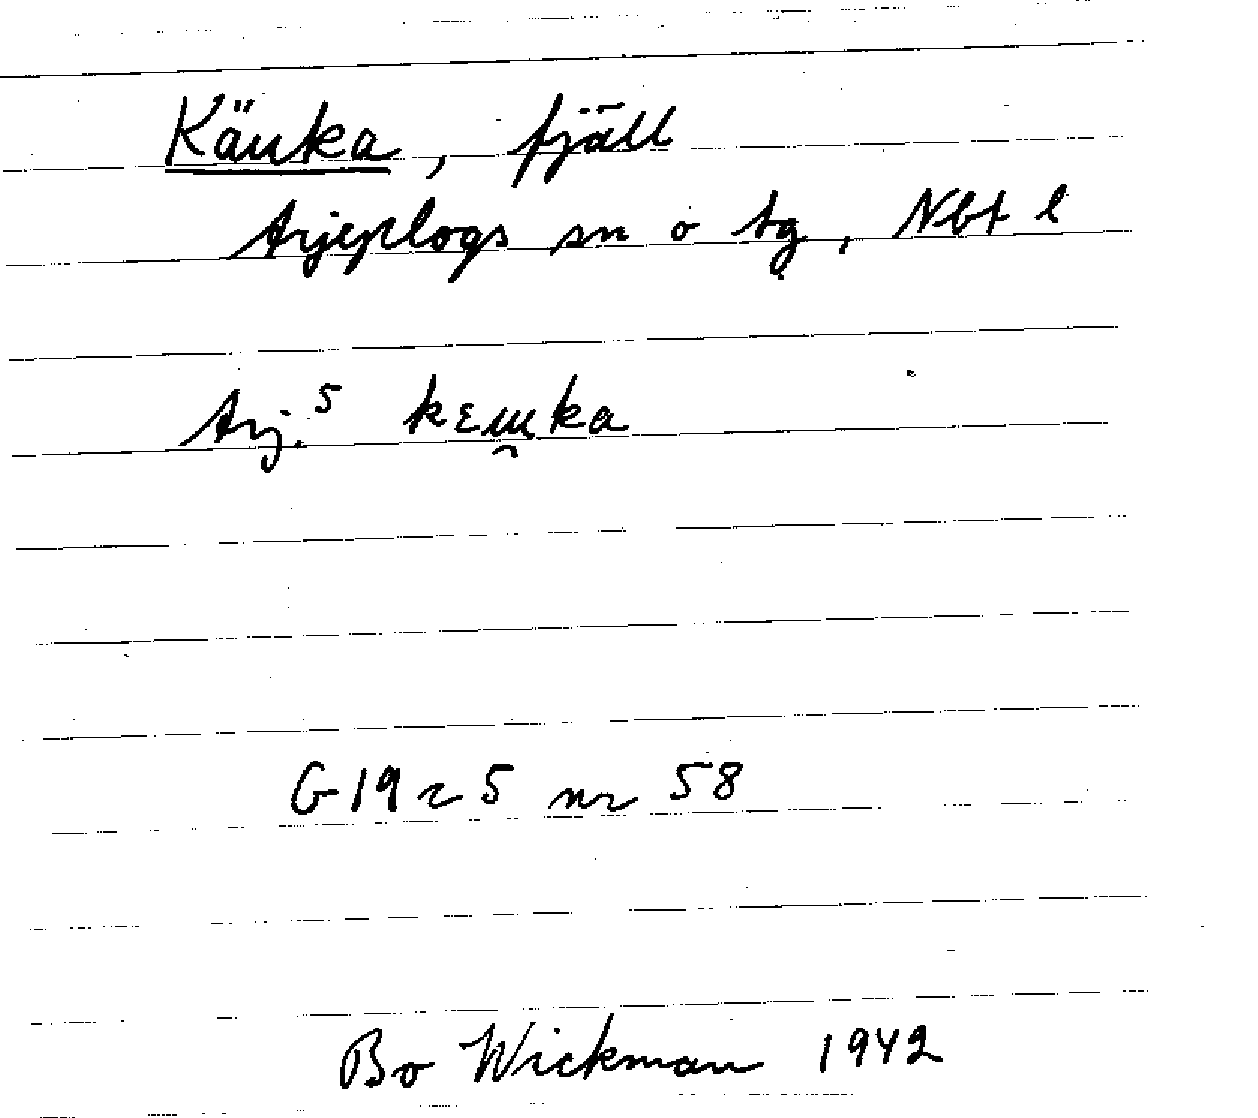 Käuka, fjäll
Arjeplogs sn o tg, Nbt l
Arj.⁵ kɛɯ̯ka
G 19 r 5 nr 58
Bo Wickman 1942